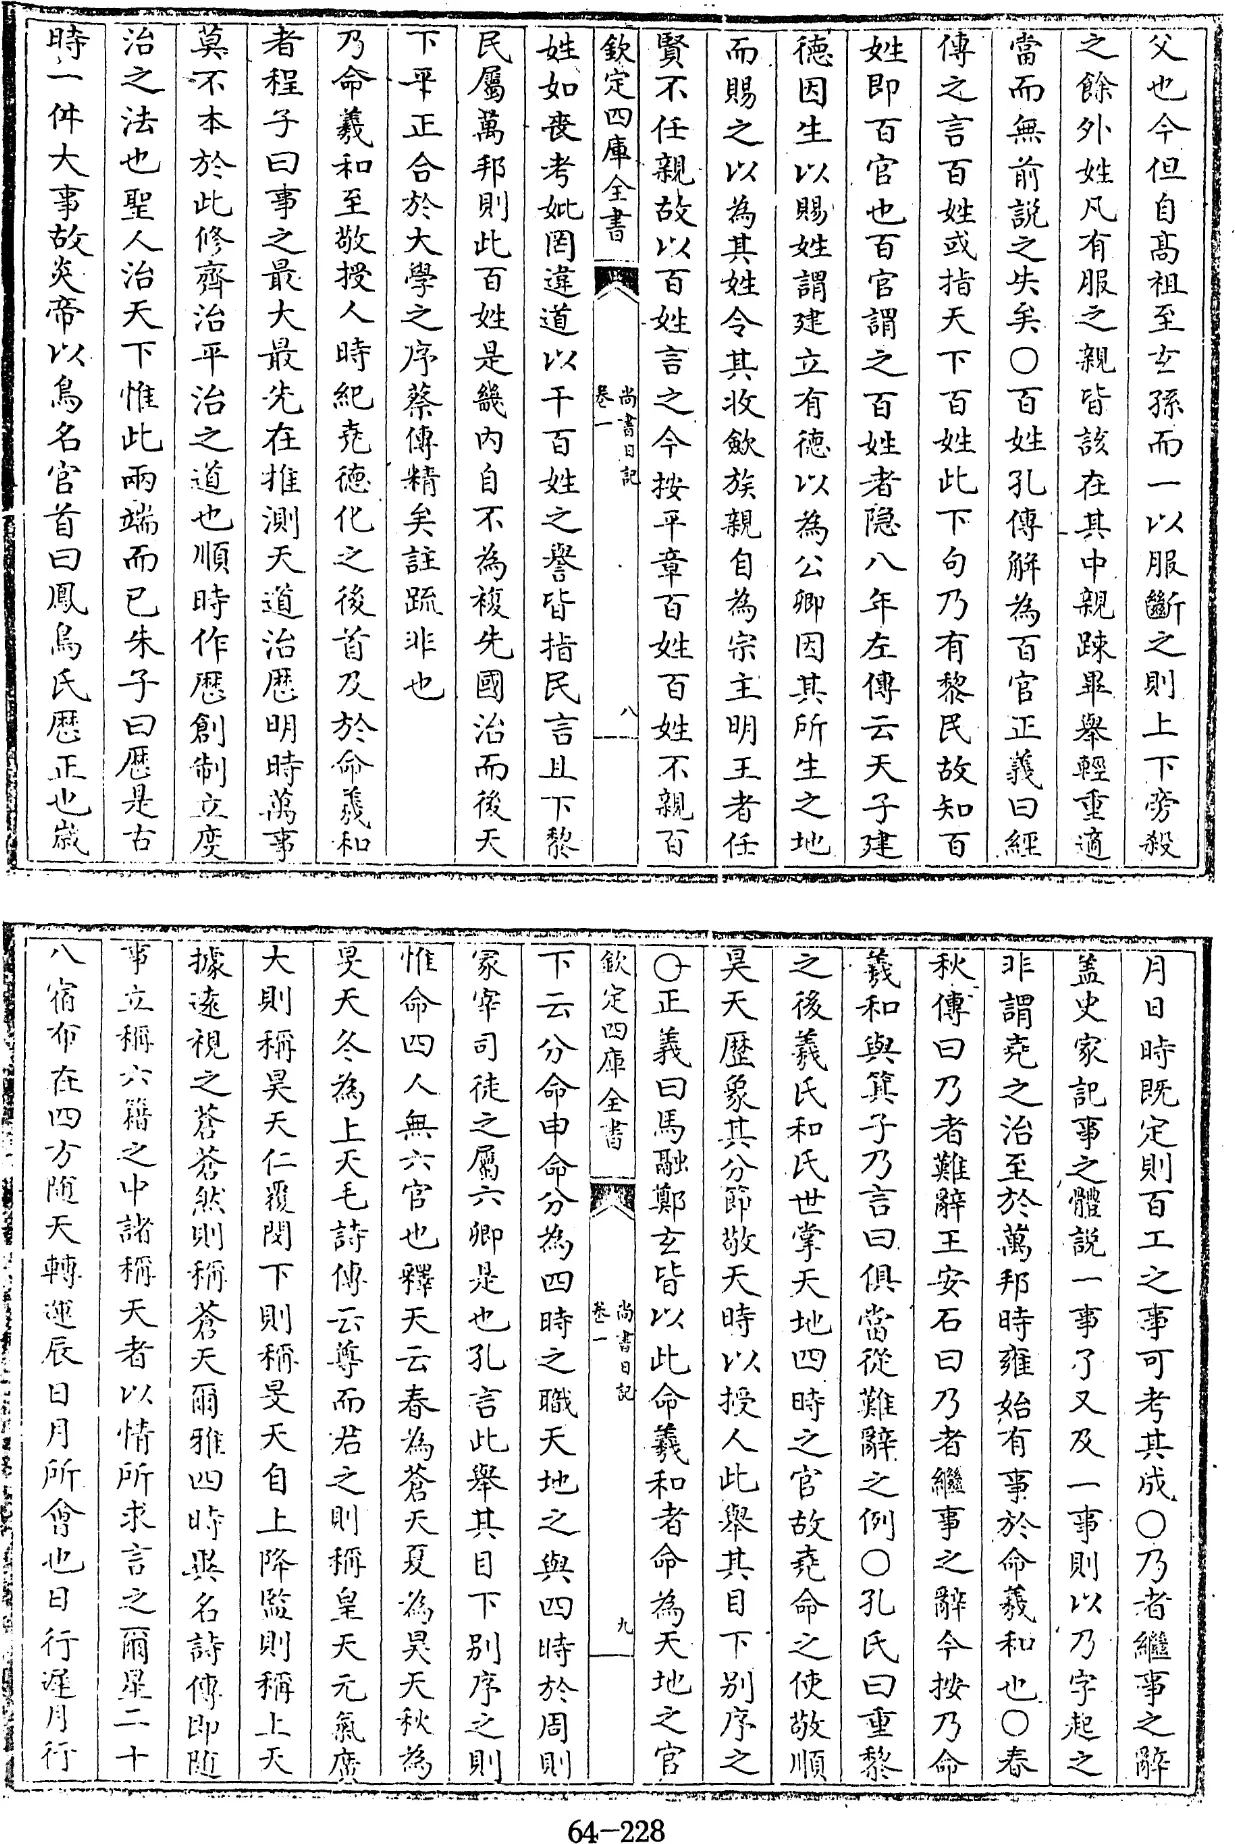 父也今但自髙祖至玄孫而一以服斷之則上下旁殺
之餘外姓凡有服之親皆該在其中親疎畢舉輕重適
當而無前説之失矣○百姓孔傳解為百官正義曰經
傳之言百姓或指天下百姓此下句乃有黎民故知百
姓即百官也百官謂之百姓者隐八年左傳云天子建
德因生以賜姓謂建立有德以為公卿因其所生之地
而賜之以為其姓令其收歛族親自為宗主明王者任
賢不任親故以百姓言之今按平章百姓百姓不親百
欽定四庫全書
尚書日記
卷一
八
姓如喪考妣罔違道以干百姓之譽皆指民言且下黎
民屬萬邦則此百姓是畿内自不為複先國治而後天
下平正合於大學之序蔡傳精矣註疏非也
乃命羲和至敬授人時紀堯德化之後首及於命羲和
者程子曰事之最大最先在推測天道治厯明時萬事
莫不本於此修齊治平治之道也順時作厯創制立度
治之法也聖人治天下惟此兩端而已朱子曰厯是古
時一件大事故炎帝以鳥名官首曰鳳鳥氏厯正也歲
月日時既定則百工之事可考其成○乃者繼事之辭
盖史家記事之體説一事了又及一事則以乃字起之
非謂堯之治至於萬邦時雍始有事於命羲和也○春
秋傳曰乃者難辭王安石曰乃者繼事之辭今按乃命
羲和與箕子乃言曰俱當從難辭之例○孔氏曰重黎
之後羲氏和氏世掌天地四時之官故堯命之使敬順
昊天歴象其分節敬天時以授人此舉其目下别序之
○正義曰馬融鄭玄皆以此命羲和者命為天地之官
欽定四庫全書
尚書日記
卷一
九
下云分命申命分為四時之職天地之與四時於周則
冢宰司徒之屬六卿是也孔言此舉其目下别序之則
惟命四人無六官也釋天云春為蒼天夏為昊天秋為
旻天冬為上天毛詩傳云尊而君之則稱皇天元氣廣
大則稱昊天仁覆閔下則稱旻天自上降監則稱上天
據遠視之蒼蒼然則稱蒼天爾雅四時異名詩傳即隨
事立稱六籍之中諸稱天者以情所求言之爾星二十
八宿布在四方随天轉運辰日月所會也日行遲月行
64-228